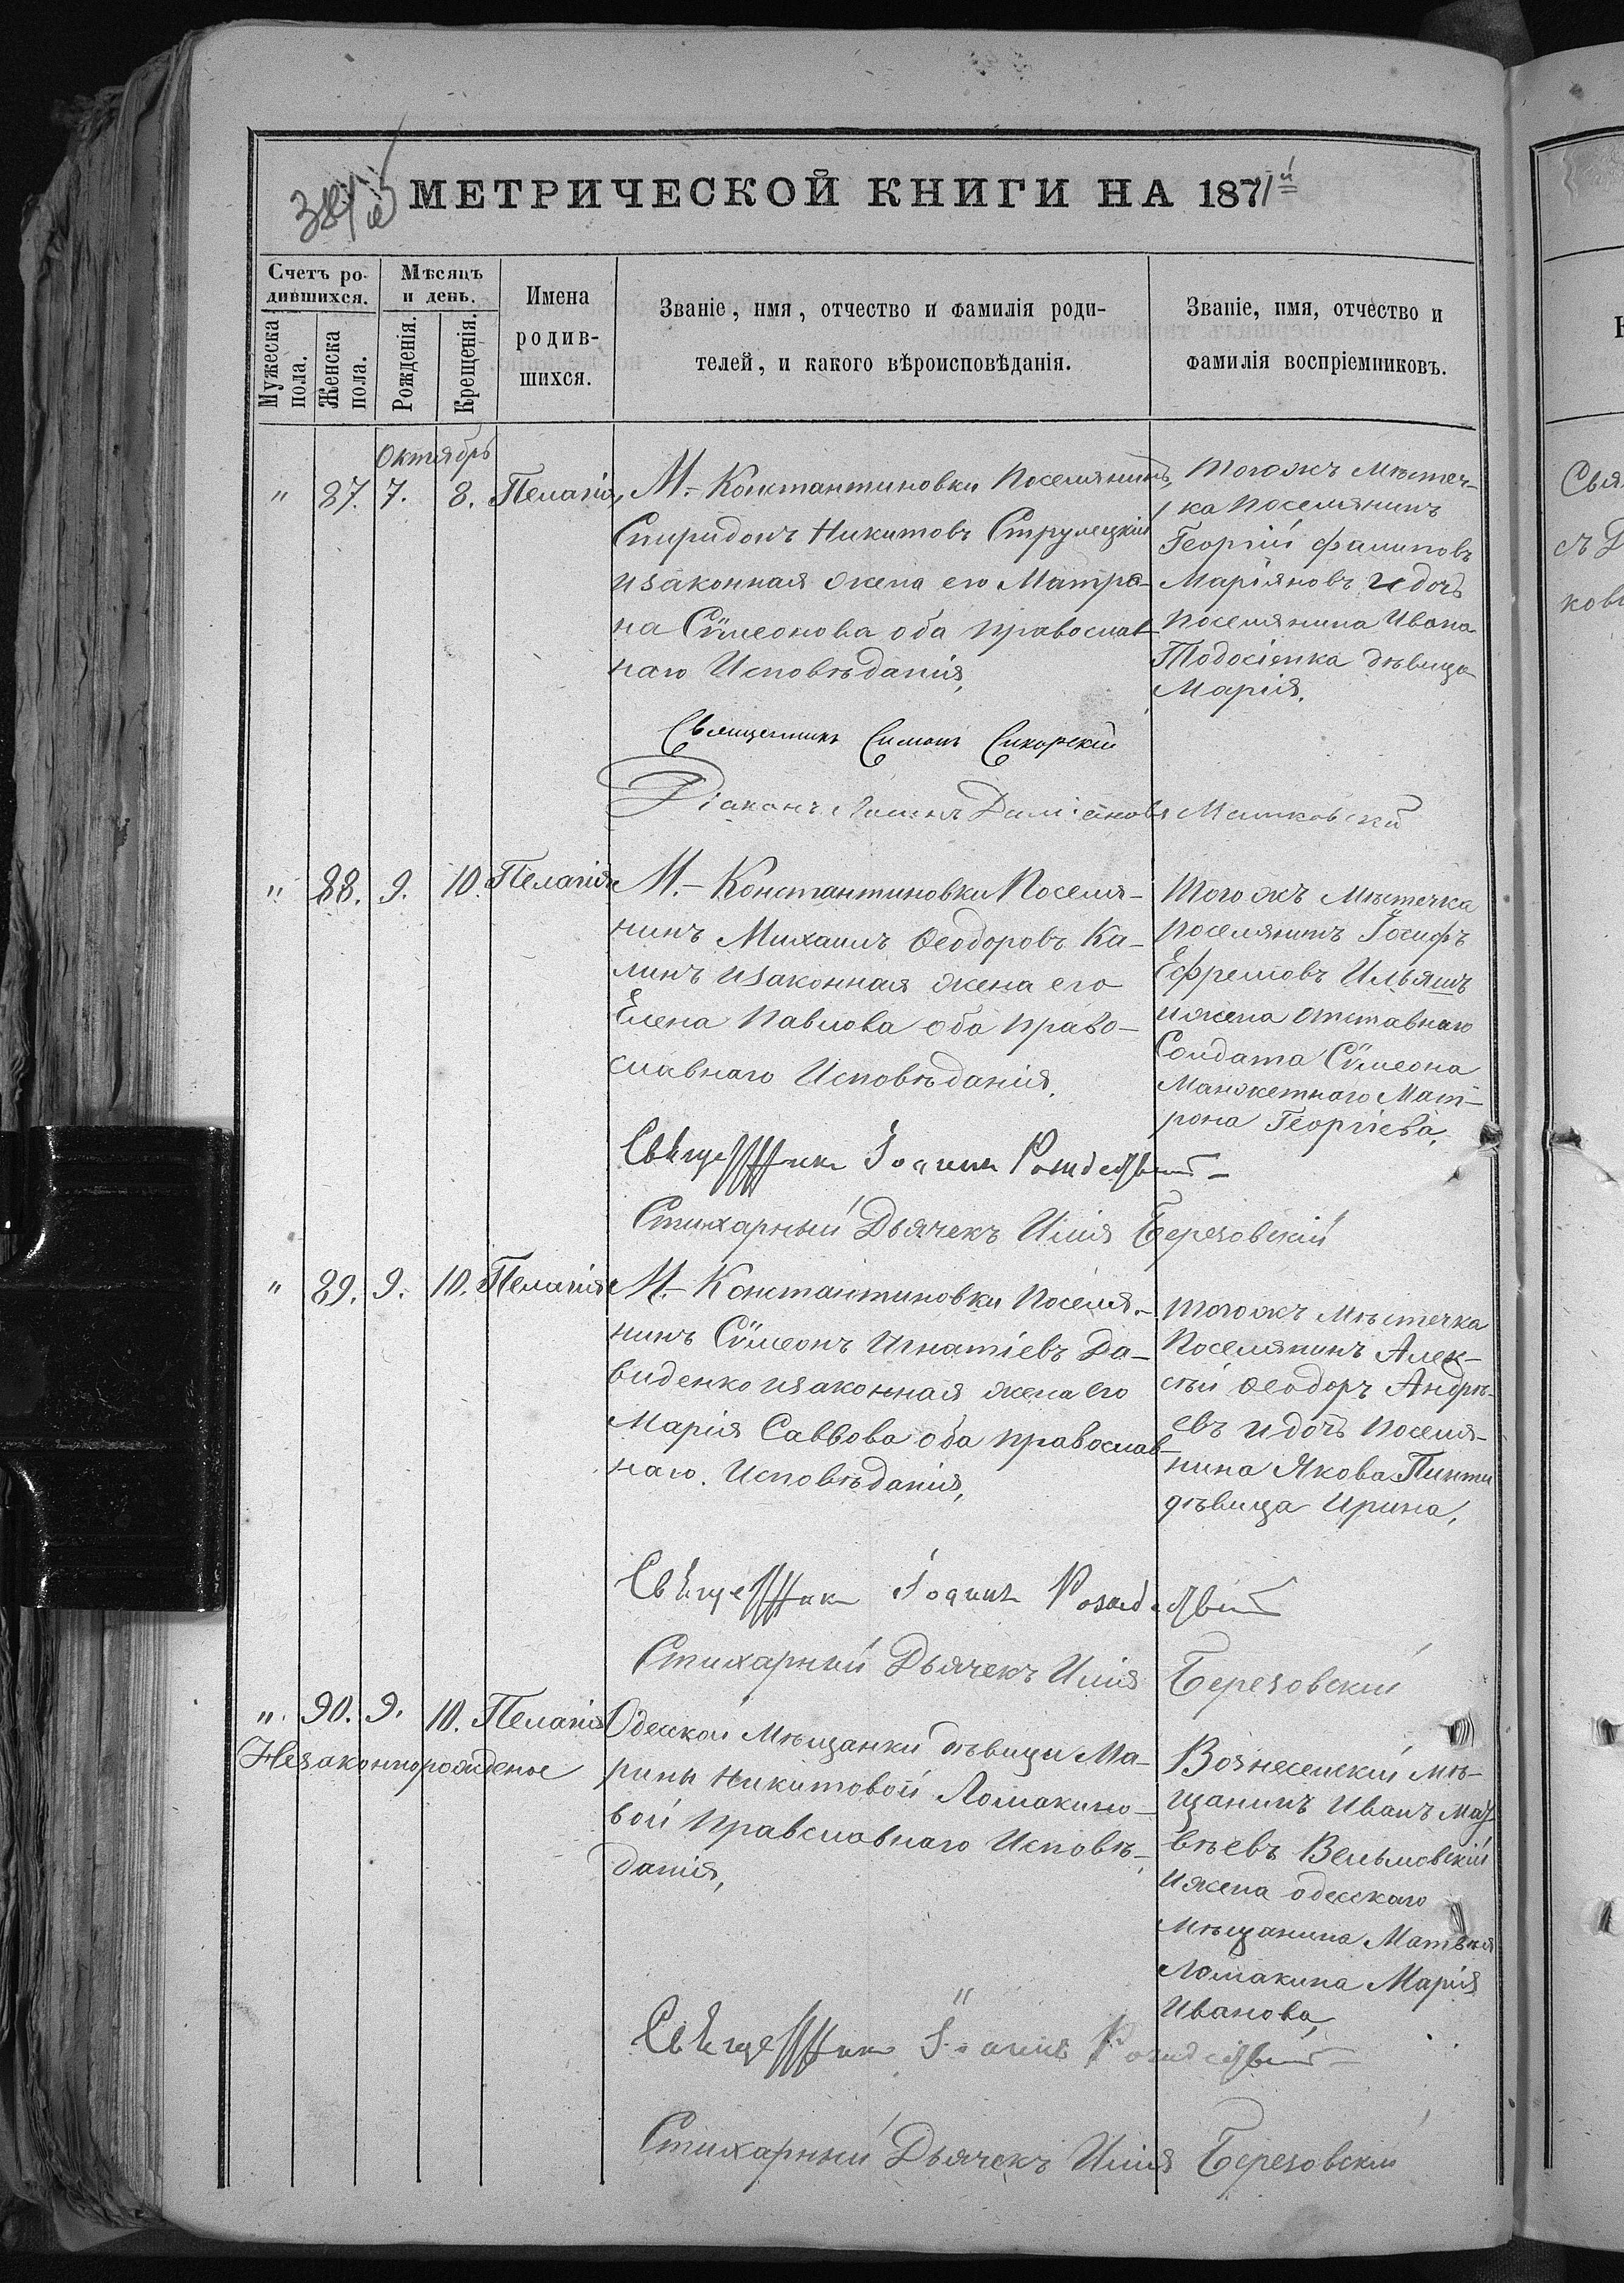 МЕТРИЧЕСКОЙ КНИГИ НА 1871й
Счетъ ро-
дившихся.
Мужеска
пола.
Женска
пола.
Мѣсяцъ
и день.
Рожденія.
Крещенія.
Имена
родив-
шихся.
Званіе, имя, отчество и фамилія роди-
телей, и какого вѣроисповѣданія.
Званіе, имя, отчество и
фамилія воспріемниковъ.
Октябрь
" 87. 7. 8. Пелагія,
М.- Константиновки Поселянинъ,
Спиридонъ Никитовъ Струлецкій
изаконная жена его Матро-
на Сѵмеонова оба православ-
наго Исповѣданія,
тогожъ мѣстеч-
ка поселянинъ
Георгій Филиповъ
Маріяновъ и дочь
поселянина Ивана
Тодосіенка дѣвица
Марія.
Священникъ Симонъ Сикорскій
Діаконъ Даміановъ
" 88. 9. 10 Пелагія
М.- Константиновки Поселя-
нинъ Михаилъ Ѳеодоровъ Ка-
линъ изаконная жена его
Елена Павлова оба право-
славнаго Исповѣданія.
того жъ Мѣстечка
поселянинъ Іосифъ
Ефремовъ Ильяшъ
ижена отставнаго
Солдата Сѵмеона
Манжетнаго Мат-
рона Георгіева,
Священникъ Іоаннъ Рождественскій
Стихарный Дьячекъ Илія Березовскій
" 89. 9. 10. Пелагія
М.- Константиновки Поселя-
нинъ Сѵмеонъ Игнатіевъ Да-
виденко изаконная жена его
Марія Саввова оба православ-
наго. Исповѣданія,
тогожъ Мѣстечка
Поселянинъ Алек-
сѣй Ѳеодоръ Андрѣ-
евъ и дочь поселя-
нина Якова Пинти
дѣвица Ирина,
Священникъ Іоаннъ Рождественскій
Стихарный Дьячекъ Илія Березовскій
". 90. 9. 10. Пелагія
Незаконнорожденое
Одесской Мѣщанки дѣвицы Ма-
рины Никитовой Ломакино-
вой Правславнаго Исповѣ-
данія,
Вознесенскій мѣ-
щанинъ Иванъ Мат
вѣевъ Вельмовскій
ижена одесскаго
мѣщанина Матвѣя
Ломакина Марія
Иванова,
Священникъ Іоаннъ Рождественскій
Стихарный Дьячекъ Илія Березовскій